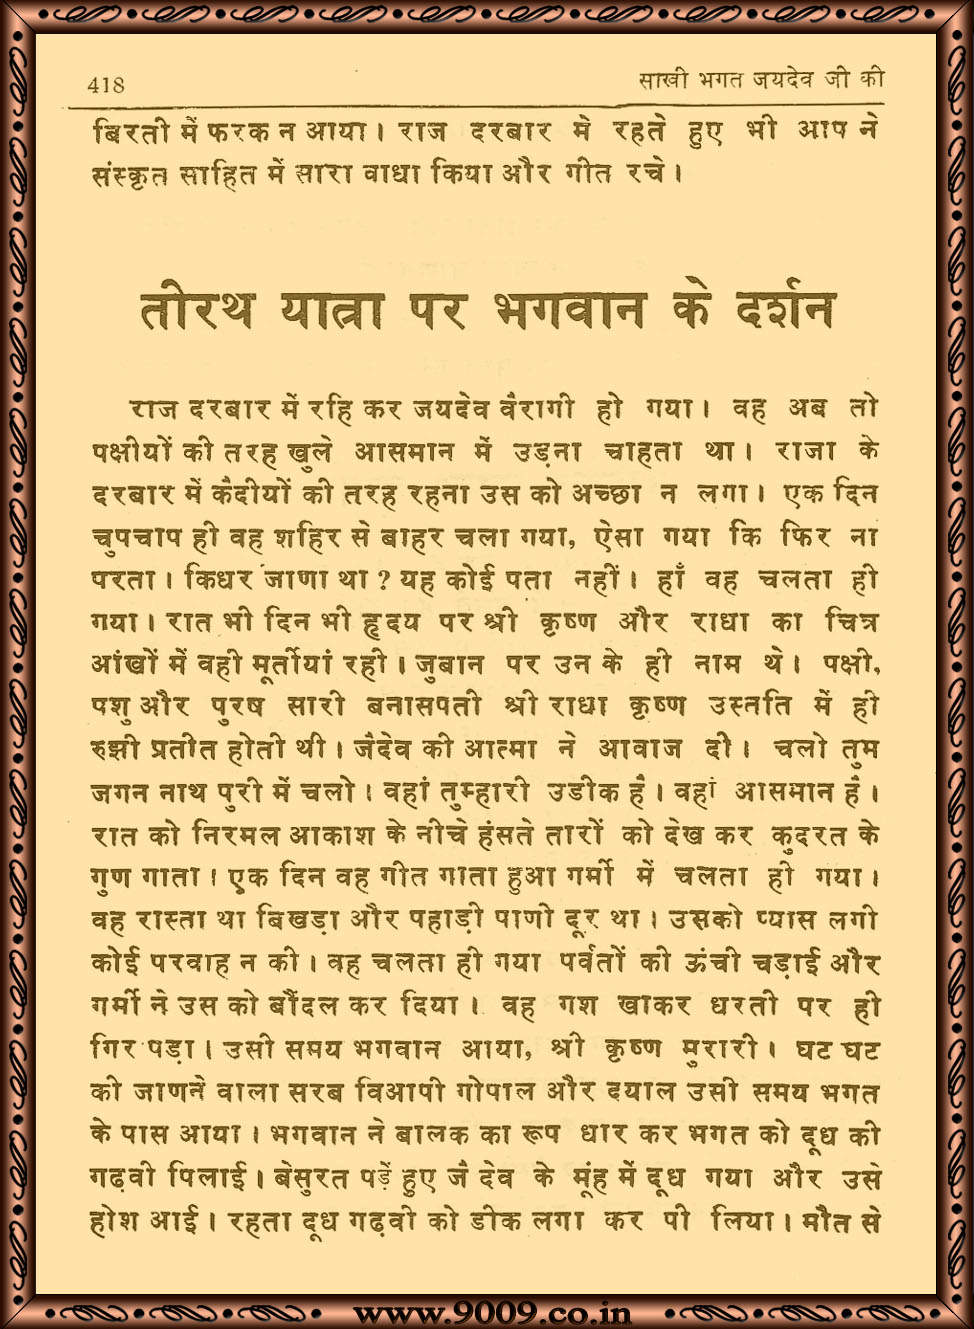 418 साखी भगत जयदेव जी की
बिरती में फरक न आया। राज दरबार मे रहते हुए भी आप ने
संस्कृत साहित में सारा वाधा किया और गीत रचे।
तीरथ यात्रा पर भगवान के दर्शन
राज दरबार में रहि कर जयदेव वैरागी हो गया। वह अब तो
पक्षीयों की तरह खुले आसमान में उड़ना चाहता था। राजा के
दरबार में कैदीयों की तरह रहना उस को अच्छा न लगा। एक दिन
चुपचाप ही वह शहिर से बाहर चला गया, ऐसा गया कि फिर ना
परता। किधर जाणा था ? यह कोई पता नहीं। हाँ वह चलता ही
गया। रात भी दिन भी हृदय पर श्री कृष्ण और राधा का चित्र
आंखों में वही मूर्तीयां रही। जुबान पर उन के ही नाम थे। पक्षी,
पशु और पुरष सारी बनासपती श्री राधा कृष्ण उस्तति में ही
रुझी प्रतीत होती थी। जैदेव की आत्मा ने आवाज दी। चलो तुम
जगन नाथ पुरी में चलो। वहां तुम्हारी उडीक है। वहां आसमान है।
रात को निरमल आकाश के नीचे हंसते तारों को देख कर कुदरत के
गुण गाता। एक दिन वह गीत गाता हुआ गर्मी में चलता ही गया।
वह रास्ता था बिखड़ा और पहाड़ी पाणी दूर था। उसको प्यास लगी
कोई परवाह न की। वह चलता ही गया पर्वतों की ऊंची चड़ाई और
गर्मी ने उस को बौंदल कर दिया। वह गश खाकर धरती पर ही
गिर पड़ा। उसी समय भगवान आया, श्री कृष्ण मुरारी। घट घट
की जाणने वाला सरब विआपी गोपाल और दयाल उसी समय भगत
के पास आया। भगवान ने बालक का रूप धार कर भगत को दूध की
गढ़वी पिलाई। बेसुरत पड़ें हुए जै देव के मूंह में दूध गया और उसे
होश आई। रहता दूध गढ़वी को डीक लगा कर पी लिया। मौत से
www.9009.co.in